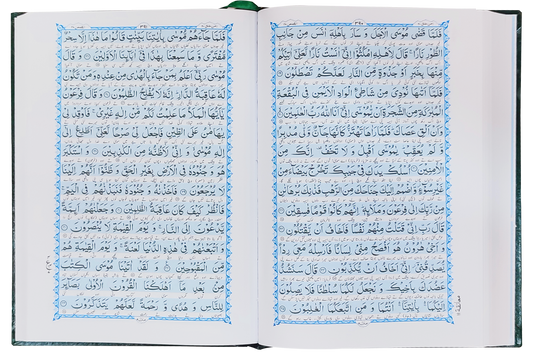 فَلَمَّا قَضٰى مُوْسَى الْاَجَلَ وَ سَارَ بِاَهْلِهٖۤ اٰنَسَ مِنْ جَانِبِ
الطُّوْرِ نَارًا ۚ قَالَ لِاَهْلِهِ امْكُثُوْۤا اِنِّیْۤ اٰنَسْتُ نَارًا لَّعَلِّیْۤ اٰتِیْكُمْ
مِّنْهَا بِخَبَرٍ اَوْ جَذْوَةٍ مِّنَ النَّارِ لَعَلَّكُمْ تَصْطَلُوْنَ
فَلَمَّاۤ اَتٰىهَا نُوْدِیَ مِنْ شَاطِئِ الْوَادِ الْاَیْمَنِ فِی الْبُقْعَةِ
الْمُبٰرَكَةِ مِنَ الشَّجَرَةِ اَنْ یّٰمُوْسٰۤى اِنِّیْۤ اَنَا اللّٰهُ رَبُّ الْعٰلَمِیْنَ
وَ اَنْ اَلْقِ عَصَاكَ ؕ فَلَمَّا رَاٰهَا تَهْتَزُّ كَاَنَّهَا جَآنٌّ وَّلّٰى مُدْبِرًا
وَّ لَمْ یُعَقِّبْ ؕ یٰمُوْسٰۤى اَقْبِلْ وَ لَا تَخَفْ ۫ اِنَّكَ مِنَ
الْاٰمِنِیْنَ اُسْلُكْ یَدَكَ فِیْ جَیْبِكَ تَخْرُجْ بَیْضَآءَ مِنْ
غَیْرِ سُوْٓءٍ ۫ وَّ اضْمُمْ اِلَیْكَ جَنَاحَكَ مِنَ الرَّهْبِ فَذٰنِكَ بُرْهَانٰنِ
مِنْ رَّبِّكَ اِلٰى فِرْعَوْنَ وَ مَلَا۠ئِهٖ ؕ اِنَّهُمْ كَانُوْا قَوْمًا فٰسِقِیْنَ
قَالَ رَبِّ اِنِّیْ قَتَلْتُ مِنْهُمْ نَفْسًا فَاَخَافُ اَنْ یَّقْتُلُوْنِ
وَ اَخِیْ هٰرُوْنُ هُوَ اَفْصَحُ مِنِّیْ لِسَانًا فَاَرْسِلْهُ مَعِیَ رِدْاً
یُّصَدِّقُنِیْۤ ؗ اِنِّیْۤ اَخَافُ اَنْ یُّكَذِّبُوْنِ قَالَ سَنَشُدُّ
عَضُدَكَ بِاَخِیْكَ وَ نَجْعَلُ لَكُمَا سُلْطٰنًا فَلَا یَصِلُوْنَ
اِلَیْكُمَا ۚ بِاٰیٰتِنَاۤ ۚ اَنْتُمَا وَ مَنِ اتَّبَعَكُمَا الْغٰلِبُوْنَ
فَلَمَّا جَآءَهُمْ مُّوْسٰى بِاٰیٰتِنَا بَیِّنٰتٍ قَالُوْا مَا هٰذَاۤ اِلَّا سِحْرٌ
مُّفْتَرًى وَّ مَا سَمِعْنَا بِهٰذَا فِیْۤ اٰبَآىِٕنَا الْاَوَّلِیْنَ وَ قَالَ
مُوْسٰى رَبِّیْۤ اَعْلَمُ بِمَنْ جَآءَ بِالْهُدٰى مِنْ عِنْدِهٖ وَ مَنْ تَكُوْنُ
لَهٗ عَاقِبَةُ الدَّارِ ؕ اِنَّهٗ لَا یُفْلِحُ الظّٰلِمُوْنَ وَ قَالَ فِرْعَوْنُ
یٰۤاَیُّهَا الْمَلَاُ مَا عَلِمْتُ لَكُمْ مِّنْ اِلٰهٍ غَیْرِیْ ۚ فَاَوْقِدْ لِیْ
یٰهَامٰنُ عَلَى الطِّیْنِ فَاجْعَلْ لِّیْ صَرْحًا لَّعَلِّیْۤ اَطَّلِعُ اِلٰۤى
اِلٰهِ مُوْسٰى ۙ وَ اِنِّیْ لَاَظُنُّهٗ مِنَ الْكٰذِبِیْنَ وَ اسْتَكْبَرَ
هُوَ وَ جُنُوْدُهٗ فِی الْاَرْضِ بِغَیْرِ الْحَقِّ وَ ظَنُّوْۤا اَنَّهُمْ اِلَیْنَا
لَا یُرْجَعُوْنَ فَاَخَذْنٰهُ وَ جُنُوْدَهٗ فَنَبَذْنٰهُمْ فِی الْیَمِّ ۚ
فَانْظُرْ كَیْفَ كَانَ عَاقِبَةُ الظّٰلِمِیْنَ وَ جَعَلْنٰهُمْ اَىِٕمَّةً
یَّدْعُوْنَ اِلَى النَّارِ ۚ وَ یَوْمَ الْقِیٰمَةِ لَا یُنْصَرُوْنَ
وَ اَتْبَعْنٰهُمْ فِیْ هٰذِهِ الدُّنْیَا لَعْنَةً ۚ وَ یَوْمَ الْقِیٰمَةِ هُمْ
مِّنَ الْمَقْبُوْحِیْنَ وَ لَقَدْ اٰتَیْنَا مُوْسَى الْكِتٰبَ
مِنْۢ بَعْدِ مَاۤ اَهْلَكْنَا الْقُرُوْنَ الْاُوْلٰى بَصَآىِٕرَ
لِلنَّاسِ وَ هُدًى وَّ رَحْمَةً لَّعَلَّهُمْ یَتَذَكَّرُوْنَ